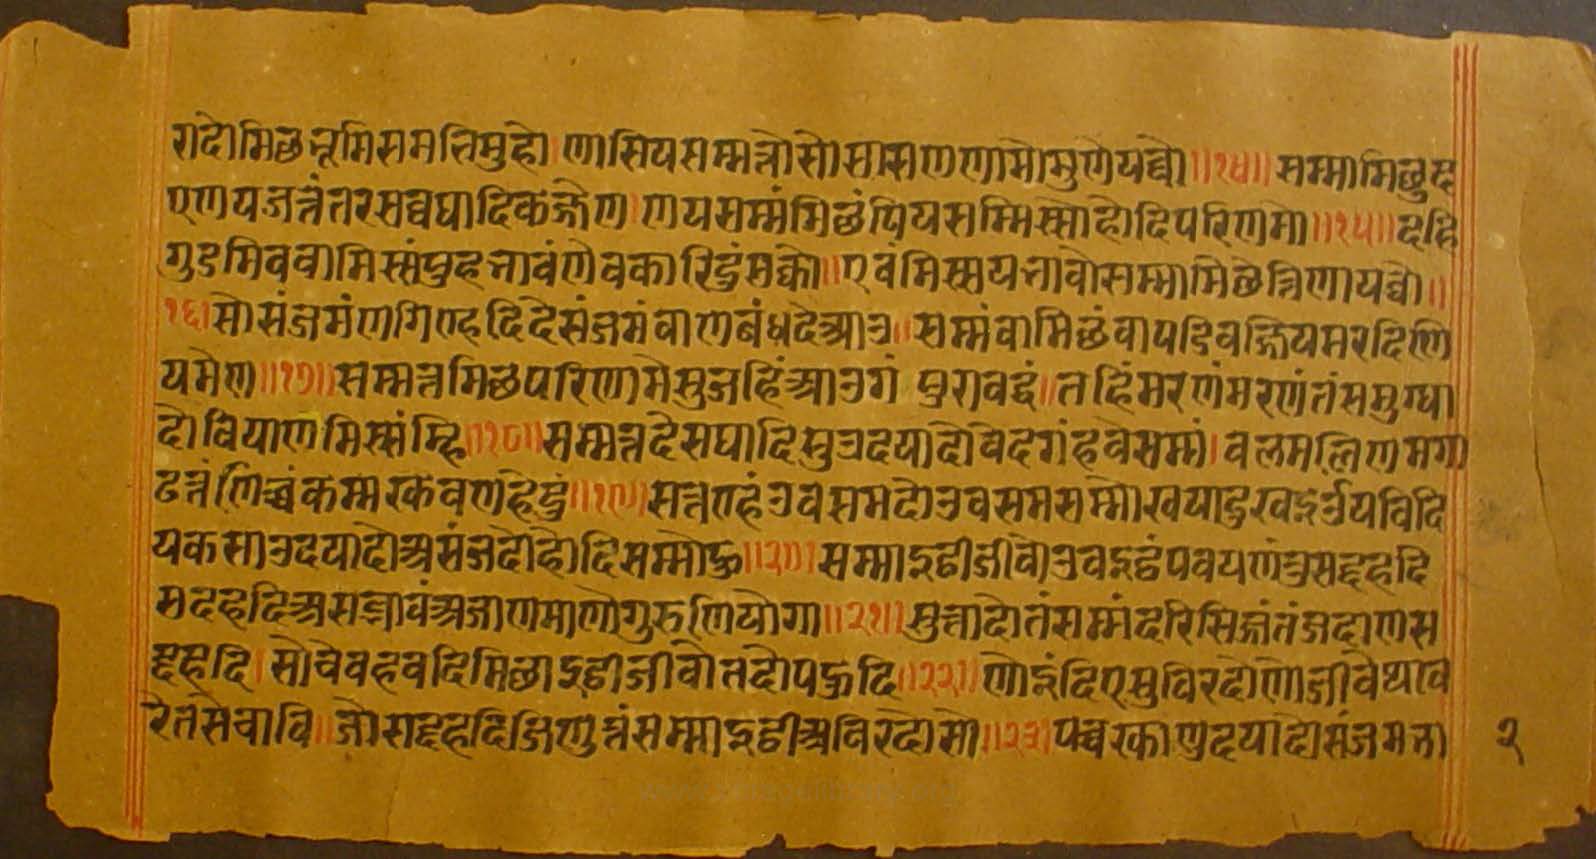 गदोमिछभूमिसमभिमुहो। णासियसम्मत्तोसोसासणणामोमुणेयव्वो॥१४॥ सम्मामिछुद
एणयजत्तंतरसव्वघादिकज्जेण। णयसम्मंमिछंपियसम्मिस्सोहोदिपरिणमो॥१५॥दहि
गुडमिववामिस्संपुहभावंणेवकारिदुंसक्को॥एवंमिस्सयभावोसम्मामिछेत्तिणायव्वो॥
१६।सोसंजमंणगिण्हदिदेसंजमंवाणबंधदेआउ॥सम्मंवामिछंवापडिवज्जियमरदिणि
यमेण॥१७॥सम्मत्तमिछपरिणामेसुजहिंआउगं पुरावद्दं॥तहिंमरणंमरणंतंसमुग्घा
दोवियाणमिस्संम्हि॥१८॥सम्मत्तदेसघादिसुउदयादोवेदगंहवेसम्मं। चलमलिणमगा
ढत्तंणिच्चंकम्मरकवणहेदुं॥१९॥सत्तण्हंउवसमदोउवसमसम्मोखयादुखइउंयविदि
यकसाउदयादोअसंजदोहोदिसम्मोऊ॥२०॥सम्माइठीजीवोउवइठंपवयणंतुसद्दहदि
सदहदिअसब्भावंअजाणमाणोगुरुणियोगा॥२१॥सुत्तादोतंसम्मंदरिसिज्जंतंजदाणस
द्दहदि।सोचेवहवदिमिछाइठीजीवोतदोपऊदि॥२२॥णोइंदिएसुविरदोणोजीवेथाव
रेतसेचावि॥जोसद्दहदिजिणुत्तंसम्माइठीअविरदोसो॥२३।पच्चरकाणुदयादोसंजमभा
२